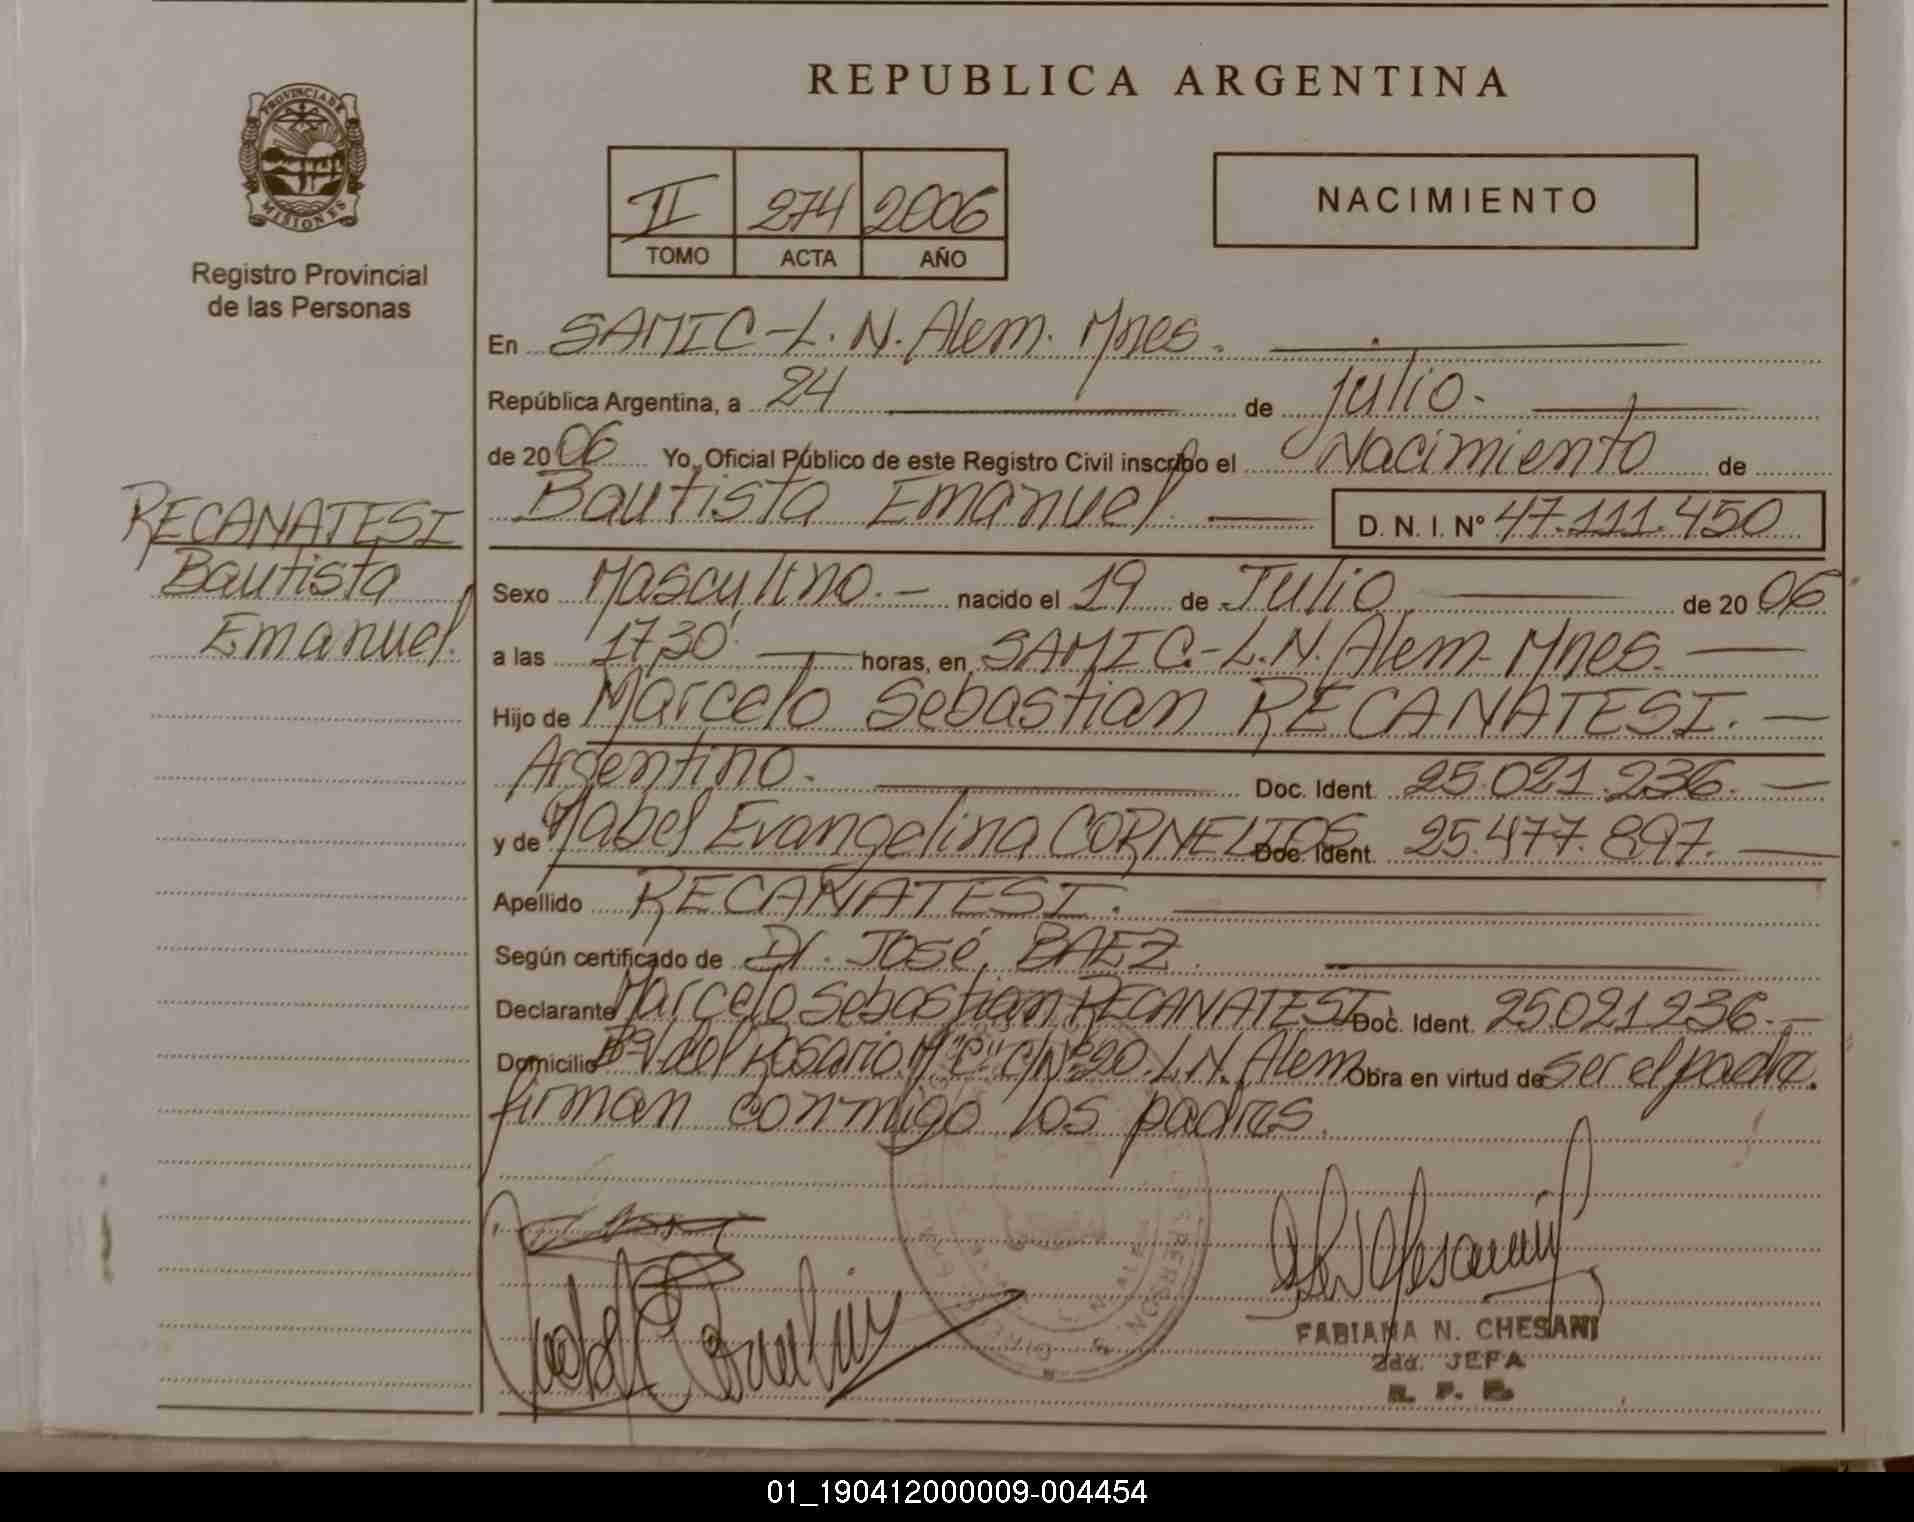 REPUBLICA ARGENTINA
PROVINCIA DE
MISIONES
Registro Provincial
de las Personas
II 274 2006
TOMO ACTA AÑO
NACIMIENTO
En SAMIC-L.N. Alem. Mnes.
República Argentina, a 24 de julio.
de 2006 Yo, Oficial Público de este Registro Civil inscribo el Nacimiento de
Bautista Emanuel D. N. I. Nº 47.111.450
RECANATESI
Bautista
Emanuel.
Sexo Masculino.- nacido el 19 de Julio de 2006
a las 17,30 horas, en SAMIC.-L.N. Alem- Mnes.
Hijo de Marcelo Sebastian RECANATESI.
Argentino. Doc. Ident. 25.021.236.
y de Mabel Evangelina CORNELIOS Doc. Ident. 25.477.897.
Apellido RECANATESI.
Según certificado de Dr. José BAEZ
Declarante Marcelo Sebastian RECANATESI Doc. Ident. 25.021.236.-
Domicilio Bº V. del Rosario. M"C" C/Nº 20. L.N. Alem Obra en virtud de ser el padre.
firman conmigo los padres.
FABIANA N. CHESANI
2da. JEFA
R. P. P.
01_190412000009-004454